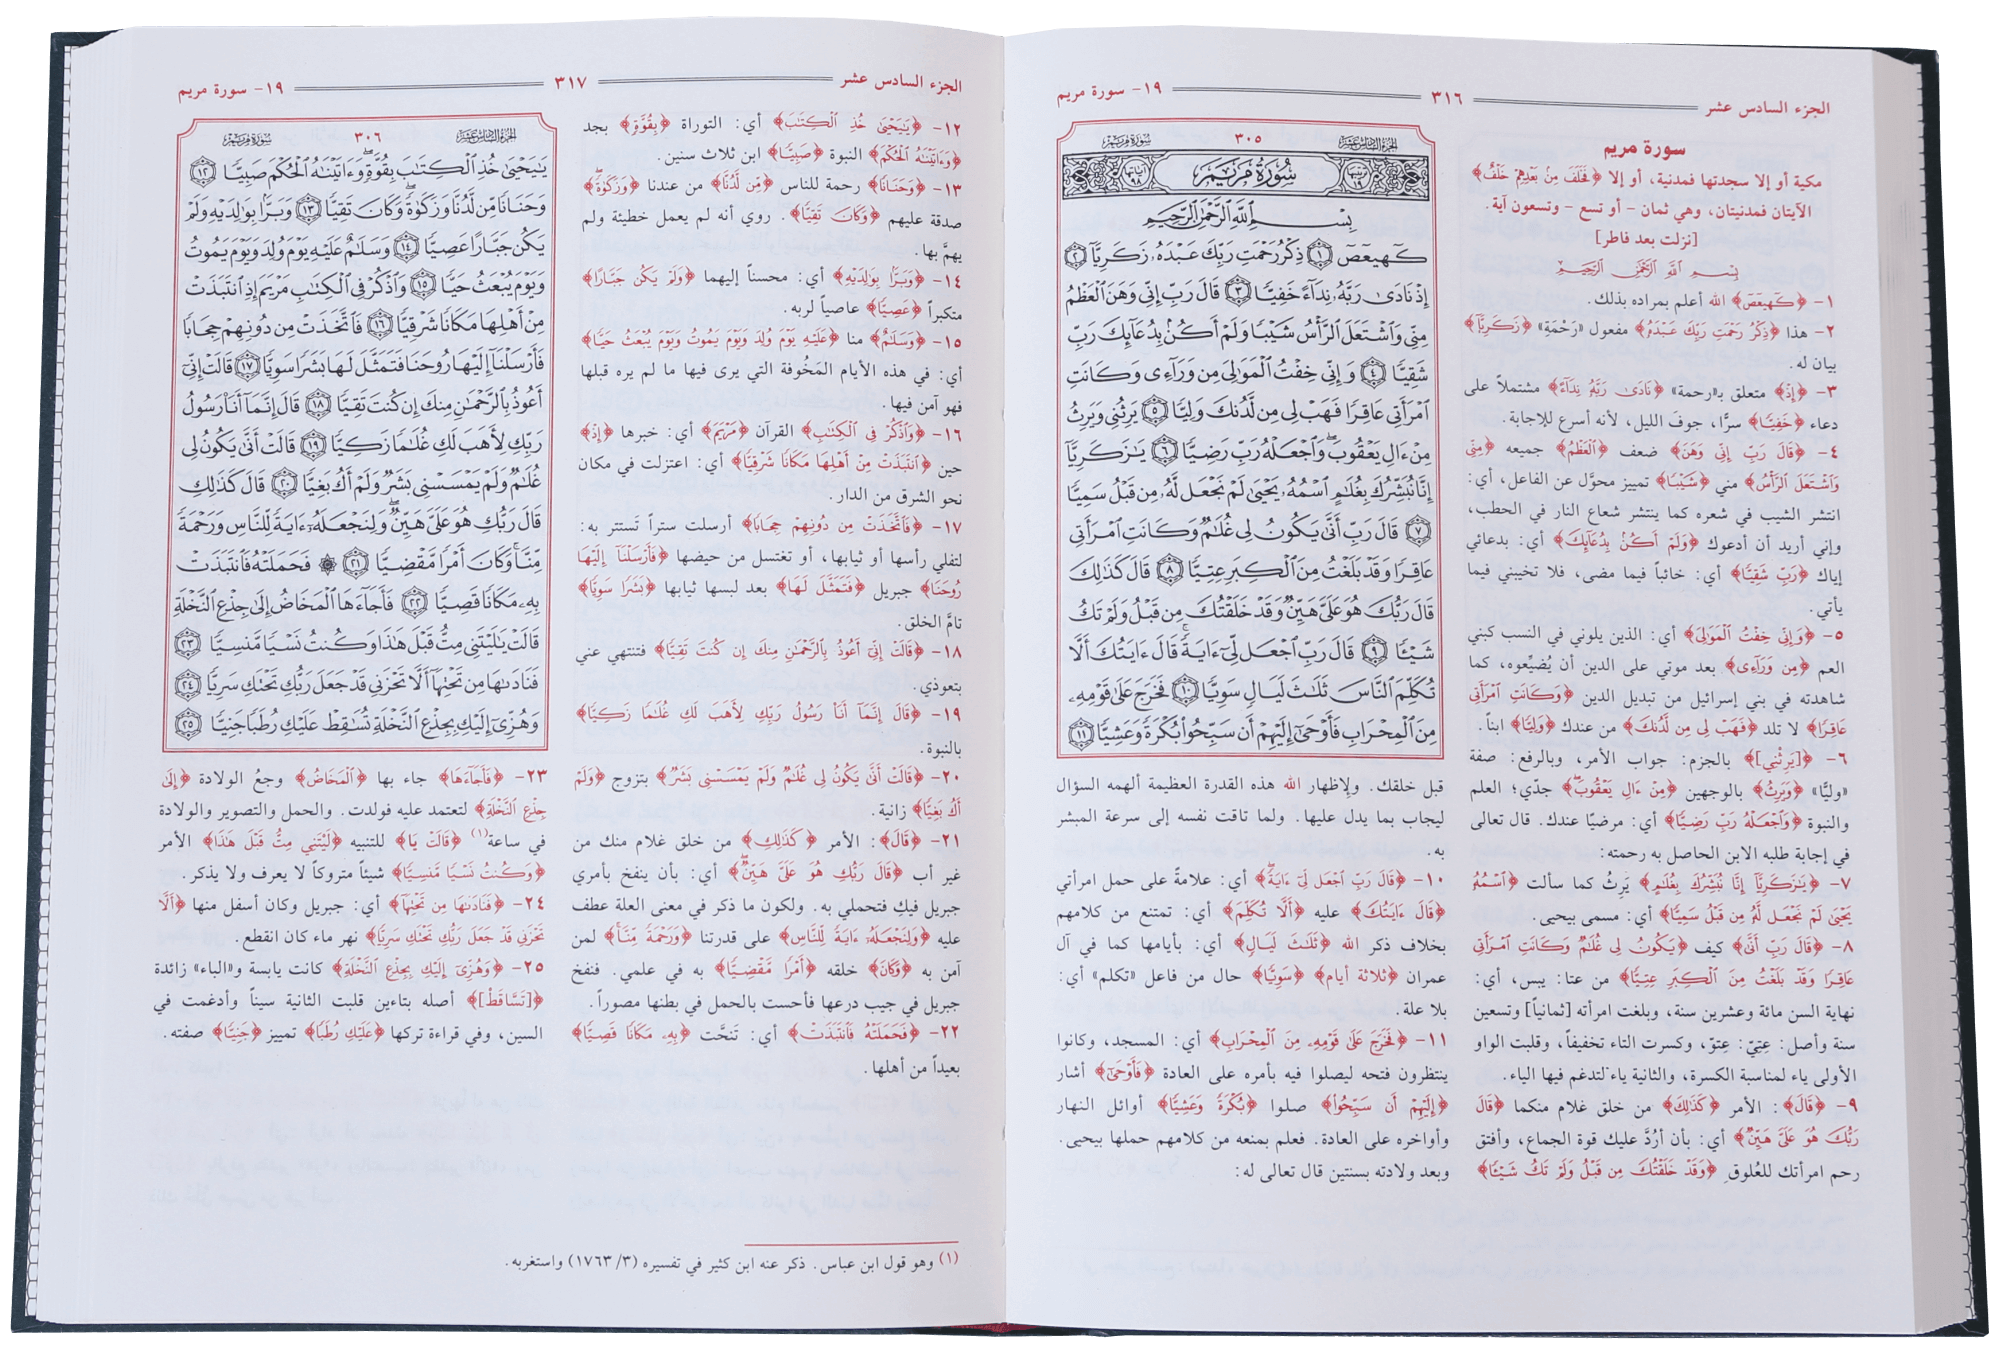 الجزء السادس عشر ٣١٦ ١٩- سورة مريم
سورة مريم
مكية أو إلا سجدتها فمدنية، أو إلا ﴿فَخَلَفَ مِنْ بَعْدِهِمْ خَلْفٌ﴾
الآيتان فمدنيتان، وهي ثمان - أو تسع - وتسعون آية.
[نزلت بعد فاطر]
بِسْمِ اللَّهِ الرَّحْمَٰنِ الرَّحِيمِ
١- ﴿كٓهيعٓصٓ﴾ الله أعلم بمراده بذلك.
٢- هذا ﴿ذِكْرُ رَحْمَتِ رَبِّكَ عَبْدَهُ﴾ مفعول «رَحْمَةِ» ﴿زَكَرِيَّا﴾
بيان له.
٣- ﴿إِذْ﴾ متعلق بـ«رحمة» ﴿نَادَىٰ رَبَّهُ نِدَاءً﴾ مشتملاً على
دعاء ﴿خَفِيًّا﴾ سرًّا، جوف الليل، لأنه أسرع للإجابة.
٤- ﴿قَالَ رَبِّ إِنِّي وَهَنَ﴾ ضعف ﴿الْعَظْمُ﴾ جميعه ﴿مِنِّي
وَاشْتَعَلَ الرَّأْسُ﴾ مني ﴿شَيْبًا﴾ تمييز محوَّل عن الفاعل، أي:
انتشر الشيب في شعره كما ينتشر شعاع النار في الحطب،
وإني أريد أن أدعوك ﴿وَلَمْ أَكُنْ بِدُعَائِكَ﴾ أي: بدعائي
إياك ﴿رَبِّ شَقِيًّا﴾ أي: خائباً فيما مضى، فلا تخيبني فيما
يأتي.
٥- ﴿وَإِنِّي خِفْتُ الْمَوَالِيَ﴾ أي: الذين يلوني في النسب كبني
العم ﴿مِنْ وَرَاءِي﴾ بعد موتي على الدين أن يُضيِّعوه، كما
شاهدته في بني إسرائيل من تبديل الدين ﴿وَكَانَتِ امْرَأَتِي
عَاقِرًا﴾ لا تلد ﴿فَهَبْ لِي مِنْ لَدُنْكَ﴾ من عندك ﴿وَلِيًّا﴾ ابناً.
٦- ﴿[يَرِثْنِي]﴾ بالجزم: جواب الأمر، وبالرفع: صفة
«وليًّا» ﴿وَيَرِثُ﴾ بالوجهين ﴿مِنْ ءَالِ يَعْقُوبَ﴾ جدّي؛ العلم
والنبوة ﴿وَاجْعَلْهُ رَبِّ رَضِيًّا﴾ أي: مرضيًا عندك. قال تعالى
في إجابة طلبه الابن الحاصل به رحمته:
٧- ﴿يَٰزَكَرِيَّا إِنَّا نُبَشِّرُكَ بِغُلَٰمٍ﴾ يَرِثُ كما سألت ﴿اسْمُهُ
يَحْيَىٰ لَمْ نَجْعَلْ لَهُ مِنْ قَبْلُ سَمِيًّا﴾ أي: مسمى بيحيى.
٨- ﴿قَالَ رَبِّ أَنَّىٰ﴾ كيف ﴿يَكُونُ لِي غُلَٰمٌ وَكَانَتِ امْرَأَتِي
عَاقِرًا وَقَدْ بَلَغْتُ مِنَ الْكِبَرِ عِتِيًّا﴾ من عتا: يبس، أي:
نهاية السن مائة وعشرين سنة، وبلغت امرأته [ثمانياً] وتسعين
سنة وأصل: عِتِيّ: عِتوّ، وكسرت التاء تخفيفاً، وقلبت الواو
الأولى ياء لمناسبة الكسرة، والثانية ياء لتدغم فيها الياء.
٩- ﴿قَالَ﴾: الأمر ﴿كَذَٰلِكَ﴾ من خلق غلام منكما ﴿قَالَ
رَبُّكَ هُوَ عَلَيَّ هَيِّنٌ﴾ أي: بأن أرُدَّ عليك قوة الجماع، وأفتق
رحم امرأتك للعُلوق ﴿وَقَدْ خَلَقْتُكَ مِنْ قَبْلُ وَلَمْ تَكُ شَيْئًا﴾
الجزء السادس عشر ٣٠٥ سورة مريم
ترتيبها ١٩ سُورَةُ مَرْيَمَ آياتها ٩٨
بِسْمِ اللَّهِ الرَّحْمَٰنِ الرَّحِيمِ
كٓهيعٓصٓ ١ ذِكْرُ رَحْمَتِ رَبِّكَ عَبْدَهُۥ زَكَرِيَّا ٢
إِذْ نَادَىٰ رَبَّهُۥ نِدَآءً خَفِيًّا ٣ قَالَ رَبِّ إِنِّي وَهَنَ الْعَظْمُ
مِنِّي وَاشْتَعَلَ الرَّأْسُ شَيْبًا وَلَمْ أَكُنۢ بِدُعَآئِكَ رَبِّ
شَقِيًّا ٤ وَإِنِّي خِفْتُ الْمَوَٰلِيَ مِن وَرَآءِي وَكَانَتِ
امْرَأَتِي عَاقِرًا فَهَبْ لِي مِن لَّدُنكَ وَلِيًّا ٥ يَرِثُنِي وَيَرِثُ
مِنْ ءَالِ يَعْقُوبَ وَاجْعَلْهُ رَبِّ رَضِيًّا ٦ يَٰزَكَرِيَّآ
إِنَّا نُبَشِّرُكَ بِغُلَٰمٍ اسْمُهُۥ يَحْيَىٰ لَمْ نَجْعَل لَّهُۥ مِن قَبْلُ سَمِيًّا
٧ قَالَ رَبِّ أَنَّىٰ يَكُونُ لِي غُلَٰمٌ وَكَانَتِ امْرَأَتِي
عَاقِرًا وَقَدْ بَلَغْتُ مِنَ الْكِبَرِ عِتِيًّا ٨ قَالَ كَذَٰلِكَ
قَالَ رَبُّكَ هُوَ عَلَيَّ هَيِّنٌ وَقَدْ خَلَقْتُكَ مِن قَبْلُ وَلَمْ تَكُ
شَيْـًٔا ٩ قَالَ رَبِّ اجْعَل لِّيٓ ءَايَةً قَالَ ءَايَتُكَ أَلَّا
تُكَلِّمَ النَّاسَ ثَلَٰثَ لَيَالٍ سَوِيًّا ١٠ فَخَرَجَ عَلَىٰ قَوْمِهِۦ
مِنَ الْمِحْرَابِ فَأَوْحَىٰٓ إِلَيْهِمْ أَن سَبِّحُوا بُكْرَةً وَعَشِيًّا ١١
قبل خلقك. ولإظهار الله هذه القدرة العظيمة ألهمه السؤال
ليجاب بما يدل عليها. ولما تاقت نفسه إلى سرعة المبشر
به.
١٠- ﴿قَالَ رَبِّ اجْعَلْ لِي ءَايَةً﴾ أي: علامةً على حمل امرأتي
﴿قَالَ ءَايَتُكَ﴾ عليه ﴿أَلَّا تُكَلِّمَ﴾ أي: تمتنع من كلامهم
بخلاف ذكر الله ﴿ثَلَٰثَ لَيَالٍ﴾ أي: بأيامها كما في آل
عمران ﴿ثلاثة أيام﴾ ﴿سَوِيًّا﴾ حال من فاعل «تكلم» أي:
بلا علة.
١١- ﴿فَخَرَجَ عَلَىٰ قَوْمِهِ مِنَ الْمِحْرَابِ﴾ أي: المسجد، وكانوا
ينتظرون فتحه ليصلوا فيه بأمره على العادة ﴿فَأَوْحَىٰ﴾ أشار
﴿إِلَيْهِمْ أَنْ سَبِّحُوا﴾ صلوا ﴿بُكْرَةً وَعَشِيًّا﴾ أوائل النهار
وأواخره على العادة. فعلم بمنعه من كلامهم حملها بيحيى.
وبعد ولادته بسنتين قال تعالى له:
الجزء السادس عشر ٣١٧ ١٩- سورة مريم
١٢- ﴿يَٰيَحْيَىٰ خُذِ الْكِتَٰبَ﴾ أي: التوراة ﴿بِقُوَّةٍ﴾ بجد
﴿وَءَاتَيْنَٰهُ الْحُكْمَ﴾ النبوة ﴿صَبِيًّا﴾ ابن ثلاث سنين.
١٣- ﴿وَحَنَانًا﴾ رحمة للناس ﴿مِنْ لَدُنَّا﴾ من عندنا ﴿وَزَكَوٰةً﴾
صدقة عليهم ﴿وَكَانَ تَقِيًّا﴾. روي أنه لم يعمل خطيئة ولم
يهمَّ بها.
١٤- ﴿وَبَرًّا بِوَٰلِدَيْهِ﴾ أي: محسناً إليهما ﴿وَلَمْ يَكُنْ جَبَّارًا﴾
متكبراً ﴿عَصِيًّا﴾ عاصياً لربه.
١٥- ﴿وَسَلَٰمٌ﴾ منا ﴿عَلَيْهِ يَوْمَ وُلِدَ وَيَوْمَ يَمُوتُ وَيَوْمَ يُبْعَثُ حَيًّا﴾
أي: في هذه الأيام المَخُوفة التي يرى فيها ما لم يره قبلها
فهو آمن فيها.
١٦- ﴿وَاذْكُرْ فِي الْكِتَٰبِ﴾ القرآن ﴿مَرْيَمَ﴾ أي: خبرها ﴿إِذِ﴾
حين ﴿انْتَبَذَتْ مِنْ أَهْلِهَا مَكَانًا شَرْقِيًّا﴾ أي: اعتزلت في مكان
نحو الشرق من الدار.
١٧- ﴿فَاتَّخَذَتْ مِنْ دُونِهِمْ حِجَابًا﴾ أرسلت ستراً تَستتر به:
لتفلي رأسها أو ثيابها، أو تغتسل من حيضها ﴿فَأَرْسَلْنَا إِلَيْهَا
رُوحَنَا﴾ جبريل ﴿فَتَمَثَّلَ لَهَا﴾ بعد لبسها ثيابها ﴿بَشَرًا سَوِيًّا﴾
تامّ الخلق.
١٨- ﴿قَالَتْ إِنِّي أَعُوذُ بِالرَّحْمَٰنِ مِنْكَ إِنْ كُنْتَ تَقِيًّا﴾ فتنتهي عني
بتعوذي.
١٩- ﴿قَالَ إِنَّمَا أَنَا رَسُولُ رَبِّكِ لِأَهَبَ لَكِ غُلَٰمًا زَكِيًّا﴾
بالنبوة.
٢٠- ﴿قَالَتْ أَنَّىٰ يَكُونُ لِي غُلَٰمٌ وَلَمْ يَمْسَسْنِي بَشَرٌ﴾ بتزوج ﴿وَلَمْ
أَكُ بَغِيًّا﴾ زانية.
٢١- ﴿قَالَ﴾: الأمر ﴿كَذَٰلِكِ﴾ من خلق غلام منك من
غير أب ﴿قَالَ رَبُّكِ هُوَ عَلَيَّ هَيِّنٌ﴾ أي: بأن ينفخ بأمري
جبريل فيكِ فتحملي به. ولكون ما ذكر في معنى العلة عطف
عليه ﴿وَلِنَجْعَلَهُ ءَايَةً لِلنَّاسِ﴾ على قدرتنا ﴿وَرَحْمَةً مِنَّا﴾ لمن
آمن به ﴿وَكَانَ﴾ خلقه ﴿أَمْرًا مَقْضِيًّا﴾ به في علمي. فنفخ
جبريل في جيب درعها فأحست بالحمل في بطنها مصوراً.
٢٢- ﴿فَحَمَلَتْهُ فَانْتَبَذَتْ﴾ أي: تَنحَّت ﴿بِهِ مَكَانًا قَصِيًّا﴾
بعيداً من أهلها.
الجزء السادس عشر ٣٠٦ سورة مريم
يَٰيَحْيَىٰ خُذِ الْكِتَٰبَ بِقُوَّةٍ وَءَاتَيْنَٰهُ الْحُكْمَ صَبِيًّا ١٢
وَحَنَانًا مِّن لَّدُنَّا وَزَكَوٰةً وَكَانَ تَقِيًّا ١٣ وَبَرًّۢا بِوَٰلِدَيْهِ وَلَمْ
يَكُن جَبَّارًا عَصِيًّا ١٤ وَسَلَٰمٌ عَلَيْهِ يَوْمَ وُلِدَ وَيَوْمَ يَمُوتُ
وَيَوْمَ يُبْعَثُ حَيًّا ١٥ وَاذْكُرْ فِي الْكِتَٰبِ مَرْيَمَ إِذِ انتَبَذَتْ
مِنْ أَهْلِهَا مَكَانًا شَرْقِيًّا ١٦ فَاتَّخَذَتْ مِن دُونِهِمْ حِجَابًا
فَأَرْسَلْنَآ إِلَيْهَا رُوحَنَا فَتَمَثَّلَ لَهَا بَشَرًا سَوِيًّا ١٧ قَالَتْ إِنِّيٓ
أَعُوذُ بِالرَّحْمَٰنِ مِنكَ إِن كُنتَ تَقِيًّا ١٨ قَالَ إِنَّمَآ أَنَا۠ رَسُولُ
رَبِّكِ لِأَهَبَ لَكِ غُلَٰمًا زَكِيًّا ١٩ قَالَتْ أَنَّىٰ يَكُونُ لِي
غُلَٰمٌ وَلَمْ يَمْسَسْنِي بَشَرٌ وَلَمْ أَكُ بَغِيًّا ٢٠ قَالَ كَذَٰلِكِ
قَالَ رَبُّكِ هُوَ عَلَيَّ هَيِّنٌ وَلِنَجْعَلَهُۥٓ ءَايَةً لِّلنَّاسِ وَرَحْمَةً
مِّنَّا وَكَانَ أَمْرًا مَّقْضِيًّا ٢١ ۞ فَحَمَلَتْهُ فَانتَبَذَتْ
بِهِۦ مَكَانًا قَصِيًّا ٢٢ فَأَجَآءَهَا الْمَخَاضُ إِلَىٰ جِذْعِ النَّخْلَةِ
قَالَتْ يَٰلَيْتَنِي مِتُّ قَبْلَ هَٰذَا وَكُنتُ نَسْيًا مَّنسِيًّا ٢٣
فَنَادَىٰهَا مِن تَحْتِهَآ أَلَّا تَحْزَنِي قَدْ جَعَلَ رَبُّكِ تَحْتَكِ سَرِيًّا ٢٤
وَهُزِّيٓ إِلَيْكِ بِجِذْعِ النَّخْلَةِ تُسَٰقِطْ عَلَيْكِ رُطَبًا جَنِيًّا ٢٥
٢٣- ﴿فَأَجَاءَهَا﴾ جاء بها ﴿الْمَخَاضُ﴾ وجعُ الولادة ﴿إِلَىٰ
جِذْعِ النَّخْلَةِ﴾ لتعتمد عليه فولدت. والحمل والتصوير والولادة
في ساعة(١) ﴿قَالَتْ يَا﴾ للتنبيه ﴿لَيْتَنِي مِتُّ قَبْلَ هَٰذَا﴾ الأمر
﴿وَكُنْتُ نَسْيًا مَنْسِيًّا﴾ شيئاً متروكاً لا يعرف ولا يذكر.
٢٤- ﴿فَنَادَىٰهَا مِنْ تَحْتِهَا﴾ أي: جبريل وكان أسفل منها ﴿أَلَّا
تَحْزَنِي قَدْ جَعَلَ رَبُّكِ تَحْتَكِ سَرِيًّا﴾ نهر ماء كان انقطع.
٢٥- ﴿وَهُزِّي إِلَيْكِ بِجِذْعِ النَّخْلَةِ﴾ كانت يابسة و«الباء» زائدة
﴿[تَسَّاقَطْ]﴾ أصله بتاءين قلبت الثانية سيناً وأدغمت في
السين، وفي قراءة تركها ﴿عَلَيْكِ رُطَبًا﴾ تمييز ﴿جَنِيًّا﴾ صفته.
(١) وهو قول ابن عباس. ذكر عنه ابن كثير في تفسيره (٣/ ١٧٦٣) واستغربه.